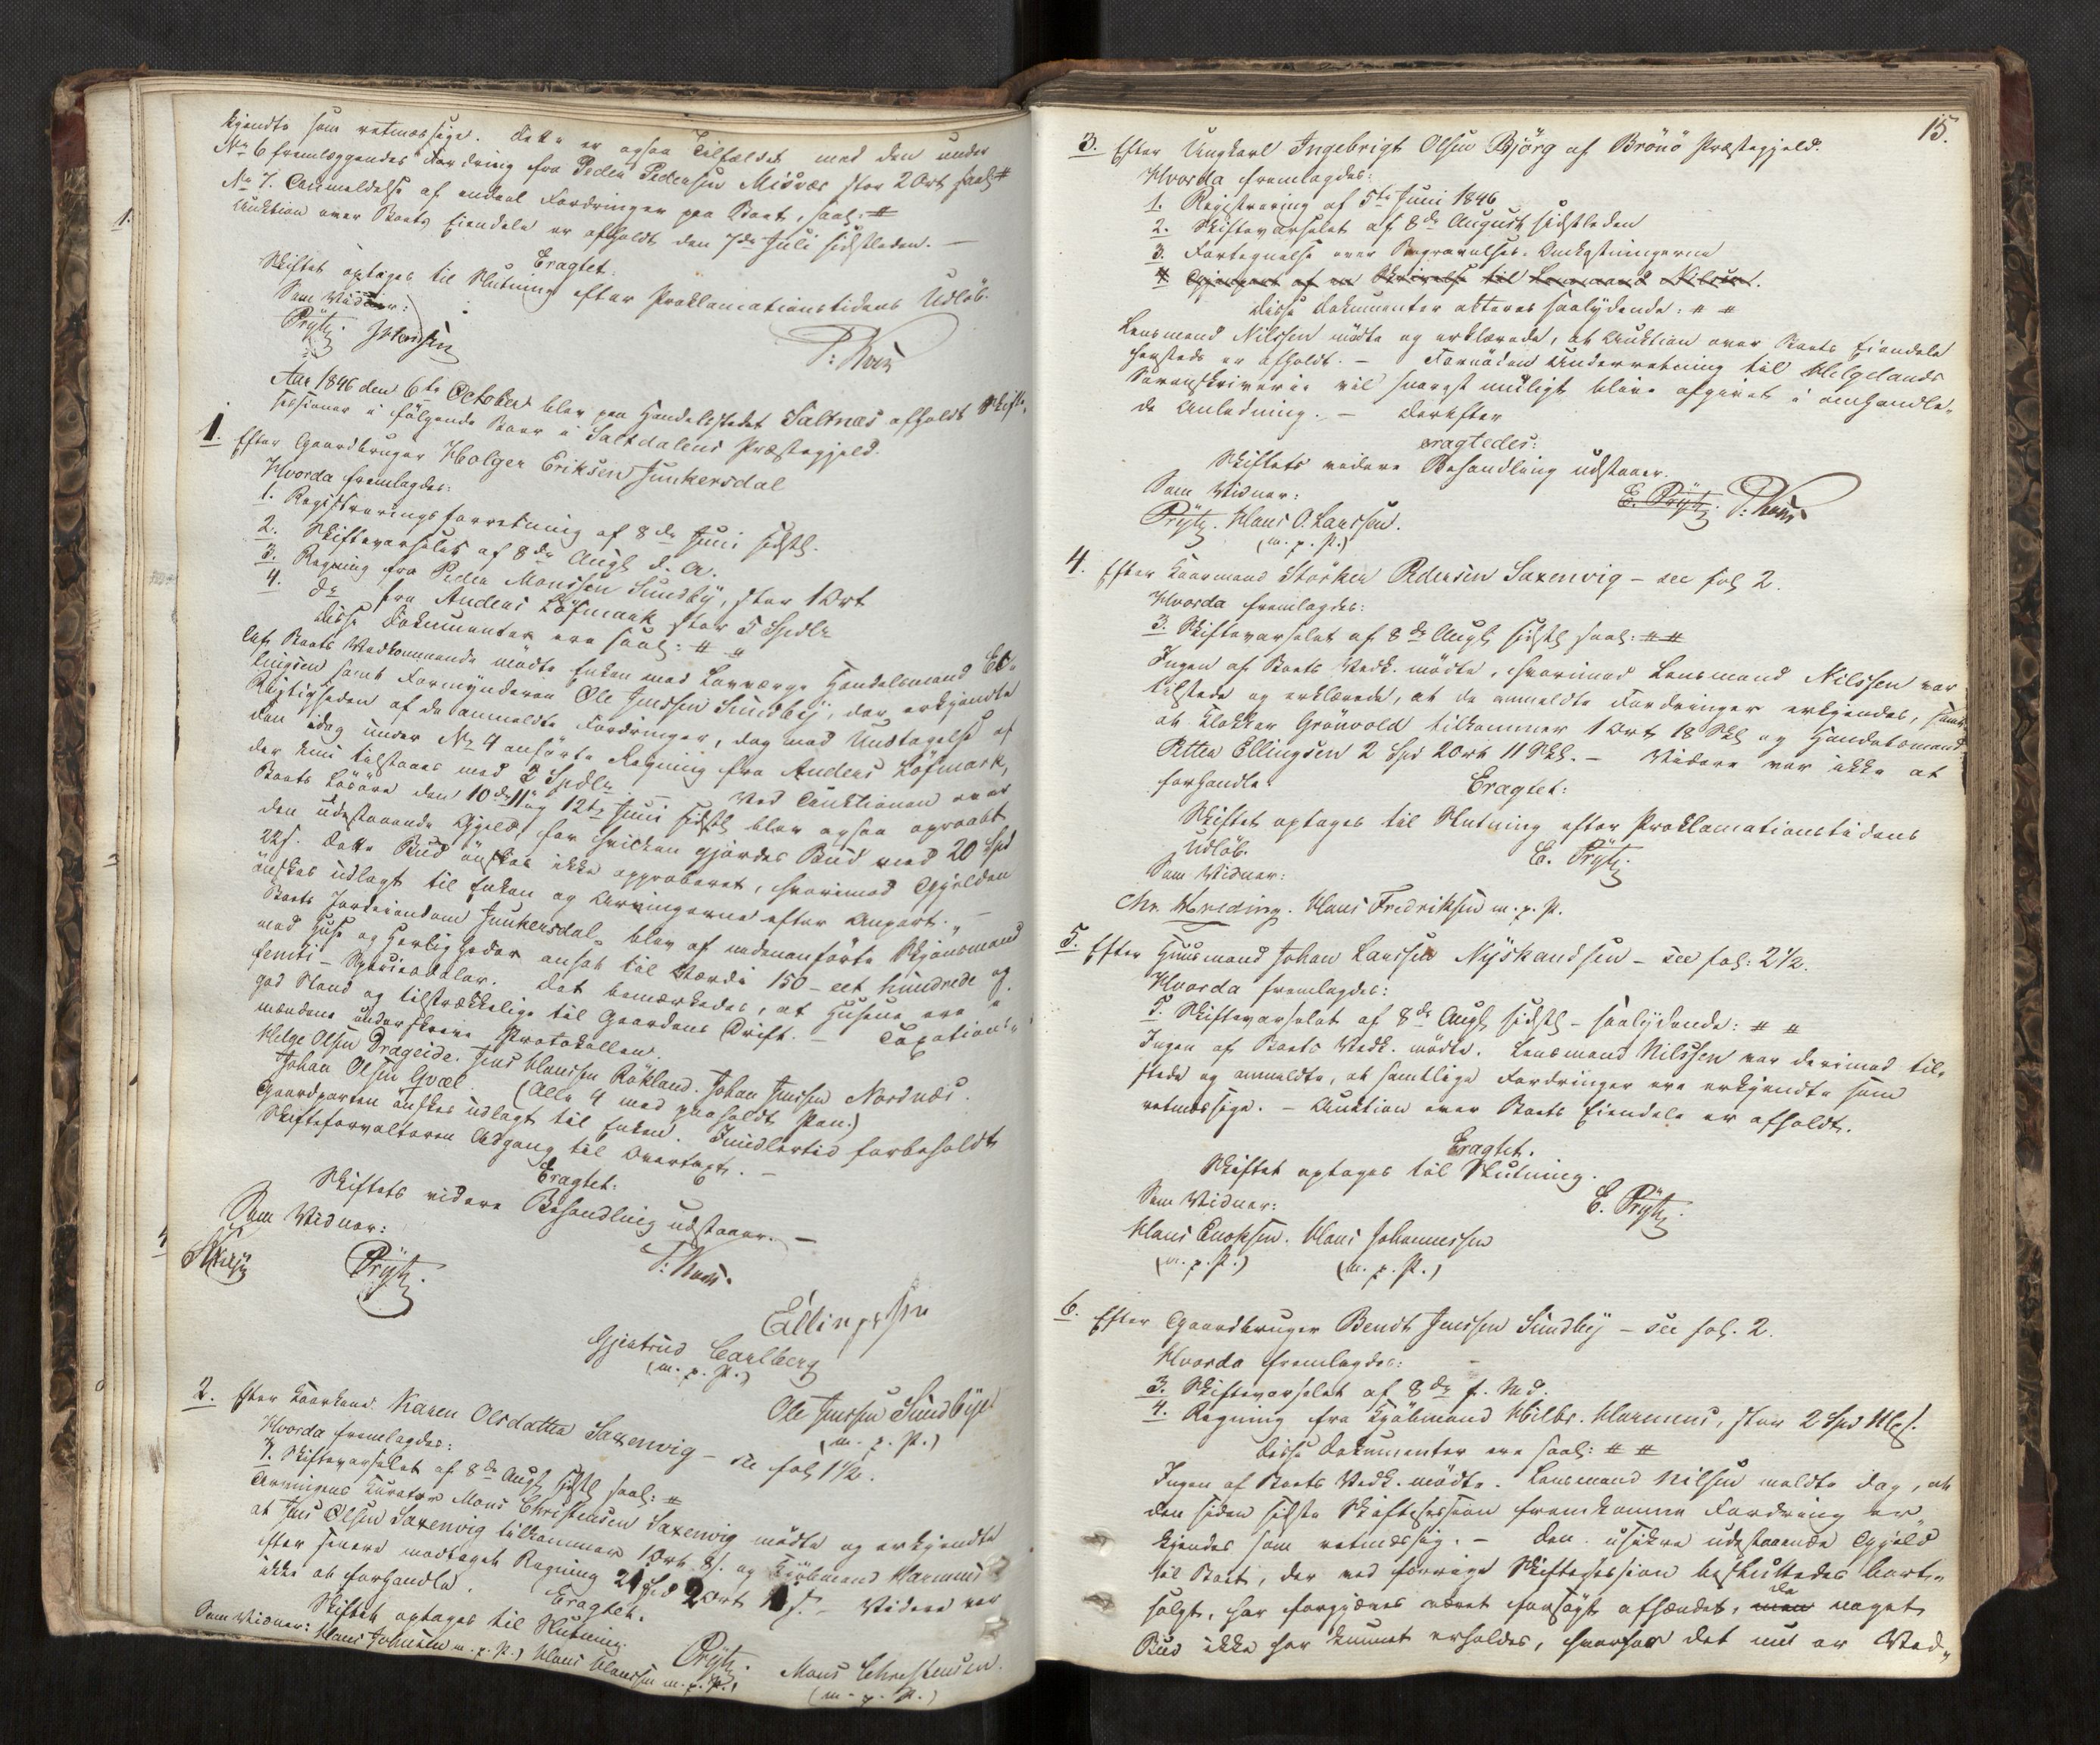 kjendte som retmæssige. Dette er ogsaa Tilfældet med den under
No 6 fremlæggendes Fordring fra Peder Pedersen Misvær stor 2 Ort saal. #
No 7. Anmeldelse af endeel Fordringer paa Boet, saal: #
Auktion over Boets Eiendele er afholdt den 7de Juli sidstleden. —
Eragtet:
Skiftet optages til Slutning efter Proklamationstidens Udløb.
Som Vidner:
Prÿtz.
Aar 1846 den 6te October blev paa Handelsstedet Saltnæs afholdt Skifte-
sessioner i følgende Boer i Saltdalens Præstegjeld.
1. Efter Gaardbruger Holger Eriksen Junkersdal
Hvorda fremlagdes:
1. Registreringsforretning af 8de Juni sidstl.
2. Skiftevarselet af 8de Augt d. A.
3. Regning fra Peder Monssen Sundbÿ, stor 1 Ort
4. do fra Anders Löfmark stor 5 Spdlr
Disse Dokumenter ere saal: # #
Af Boets Vedkommende mødte Enken med Laugværge Handelsmand El-
lingsen samt Formynderen Ole Jensen Sundbÿ, der erkjendte
Rigtigheden af de anmeldte Fordringer, dog med Undtagelse af
den idag under No 4 anførte Regning fra Anders Löfmark,
der kun tilstaaes med 2 Spdlr — Ved Auktionen over
Boets Løsøre den 10de, 11 og 12te Juni sidstl blev ogsaa opraabt
den udestaaende Gjeld, for hvilken gjordes Bud med 20 Spd
22 s. Dette Bud ønskes ikke approberet, hvorimod Gjelden
ønskes udlagt til Enken og Arvingerne efter Anpart. —
Boets Jordeiendom Junkersdal blev af nedenanførte Skjønsmænd
med Huse og Herligheder ansat til Værdi 150 - eet hundrede og
femti - Speciedaler. Det bemærkedes, at Husene ere i
god Stand og tilstrækkelige til Gaardens Drift. — Taxations-
mændene underskreve Protokollen.
Helge Olsen Drageide. Jens Hanssen Rökland. Johan Jensen Nordnæs.
Johan Olsen Evæl. (Alle 4 med paaholdt Pen.)
Gaardparten ønskes udlagt til Enken. Imidlertid forbeholdt
Skifteforvalteren Adgang til Overtaxt. —
Eragtet:
Skiftets videre Behandling udstaaer. —
Som Vidner:
Prÿtz.
Ellingsen
Gjertrud Carlberg
(m. p. P.)
Ole Jenssen Sundbÿe
(m. p. P.)
2. Efter Kaarkone Karen Olsdatter Saxenvig - see fol 1 1/2.
Hvorda fremlagdes:
7. Skiftevarselet af 8de Augt sidstl saal: #
Arvingens Kurator Mons Christensen Saxenvig mødte og erkjendte
at Jens Olsen Saxenvig tilkommer 1 Ort 8 s. og Kjøbmand Harmens
efter senere modtaget Regning 21 Spd 2 Ort 1 s. — Videre var
ikke at forhandle.
Eragtet.
Skiftet optages til Slutning.
Som Vidner: Hans Johnsen m. p. P.) Hans Hanssen m. p. P.)
Prÿtz. Mons Christensen.
(m. p. P.)
15.
3. Efter Ungkarl Ingebrigt Olsen Bjørg af Brønø Præstegjeld.
Hvorda fremlagdes:
1. Registrering af 5te Juni 1846
2. Skiftevarselet af 8de August sidstleden
3. Fortegnelse over Begravelses-Omkostningerne
4. Gjenpart af en Skrivelse til Lensmand Nilssen.
Disse Dokumenter atteres saalydende: # #
Lensmand Nilssen mødte og erklærede, at Auktion over Boets Eiendele
hersteds er afholdt. — Fornøden Underretning til Helgelands
Sorenskriverie vil snarest muligt blive afgivet i omhandle-
de Anledning. — Derefter
eragtedes:
Skiftets videre Behandling udstaaer.
Som Vidner:
E. Prÿtz.
Prÿtz. Hans O. Larssen.
(m. p. P.)
4. Efter Kaarmand Størker Pedersen Saxenvig - see fol 2.
Hvorda fremlagdes:
3. Skiftevarselet af 8de Augt sidstl saal: # #
Ingen af Boets Vedk. mødte, hvorimod Lensmand Nilssen var
tilstede og erklærede, at de anmeldte Fordringer erkjendes, samt
at Klokker Grönvold tilkommer 1 Ort 18 Skl og Handelsmand
Petter Ellingsen 2 Spd 2 Ort 11 Skl. — Videre var ikke at
forhandle.
Eragtet:
Skiftet optages til Slutning efter Proklamationstidens
Udløb.
E. Prÿtz.
Som Vidner:
Chr. Hveding. Hans Fredriksen m. p. P.
5. Efter Huusmand Johan Larssen Nÿskandsen - see fol: 2 1/2.
Hvorda fremlagdes:
5. Skiftevarselet af 8de Augt sidstl - saalydende: # #
Ingen af Boets Vedk. mødte. Lensmand Nilssen var derimod til-
stede og anmeldte, at samtlige Fordringer ere erkjendte som
retmæssige. — Auktion over Boets Eiendele er afholdt.
Eragtet.
Skiftet optages til Slutning.
Som Vidner:
E. Prÿtz.
Hans Enoksen. Hans Johannessen
(m. p. P.) (m. p. P.)
6. Efter Gaardbruger Bendt Jenssen Sundbÿ - see fol. 2.
Hvorda fremlagdes:
3. Skiftevarselet af 8de f. Md.
4. Regning fra Kjøbmand Hilbr. Harmens, stor 2 Spd
Disse Dokumenter ere saal: # #
Ingen af Boets Vedk. mødte. Lensmand Nilssen meldte dog, at
den siden sidste Skiftesession fremkomne Fordring er-
kjendes som retmæssig. — Den usikre udestaaende Gjeld
til Boet, der ved forrige Skiftesession besluttedes bort-
solgt, har forgjæves været forsøgt afhændet, men da noget
Bud ikke har kunnet erholdes, hvorfor det nu er Ved-